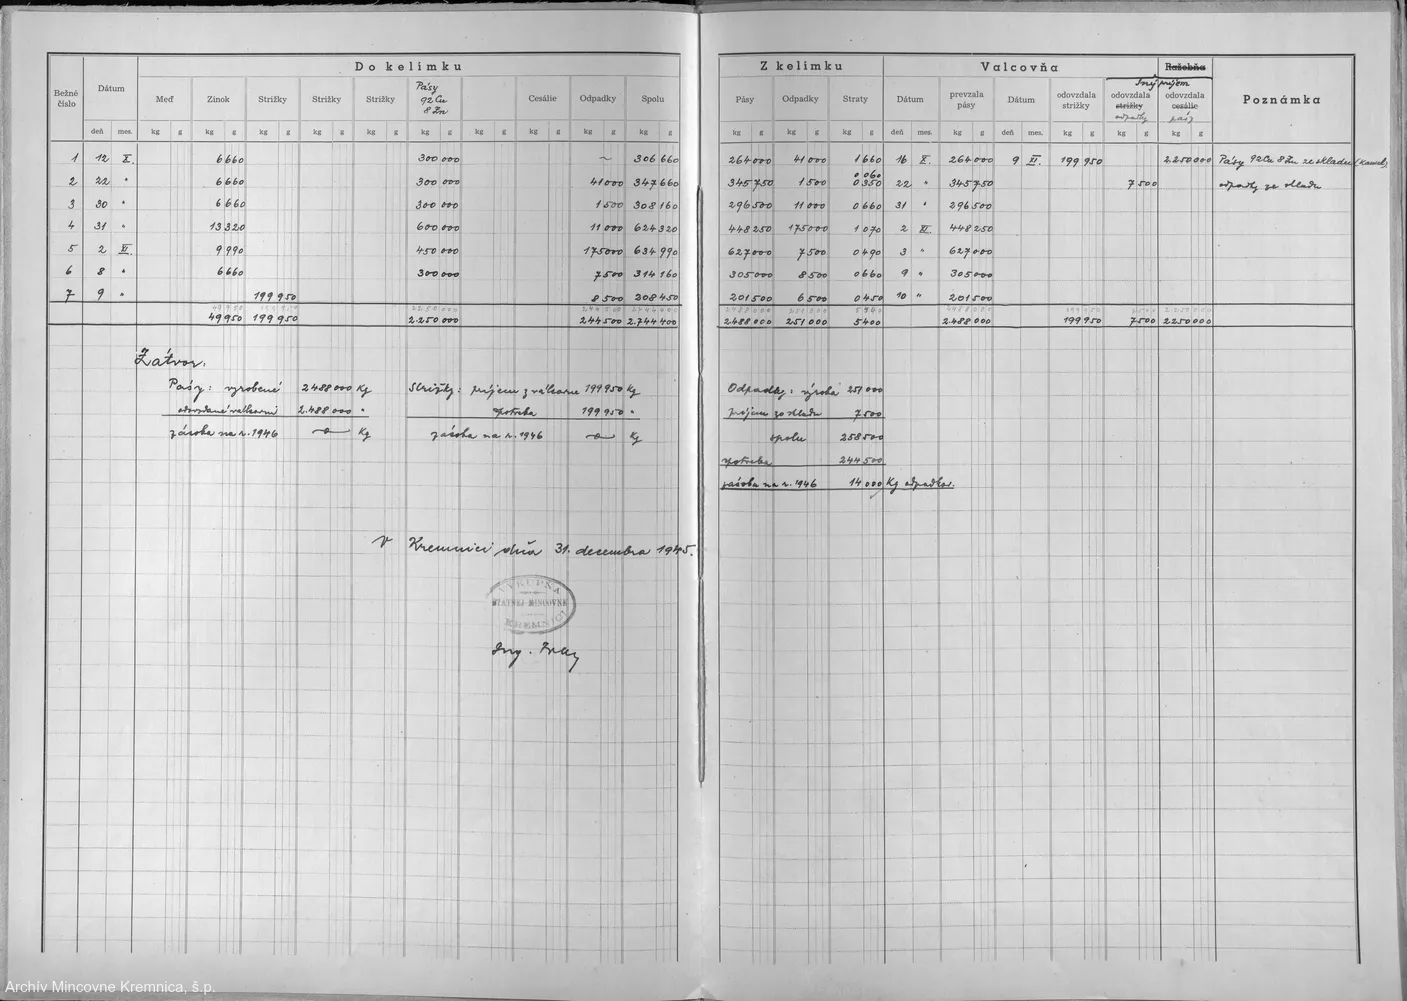 Do kelímku
Bežné číslo
Dátum
Meď
Zinok
Strižky
Strižky
Strižky
Pásy 92 Cu 8 Zn
Cesálie
Odpadky
Spolu
deň mes. kg g kg g kg g kg g kg g kg g kg g kg g kg g kg g
1 12 X. 6 660 300 000 ~ 306 660
2 22 " 6 660 300 000 41 000 347 660
3 30 " 6 660 300 000 1 500 308 160
4 31 " 13 320 600 000 11 000 624 320
5 2 XI. 9 990 450 000 175 000 634 990
6 8 " 6 660 300 000 7 500 314 160
7 9 " 199 950 8 500 208 450
49 950 199 950 2.250.000 244 500 2.744 400
Zátvor:
Pásy: vyrobené 2 488 000 Kg Strižky: príjem z válcovne 199 950 Kg
odovzdané válcovni 2.488 000 " spotreba 199 950 "
zásoba na r. 1946 -o- Kg zásoba na r. 1946 -o- Kg
V Kremnici dňa 31. decembra 1945.
VÝKUPŇA
ŠTÁTNEJ MINCOVNE
KREMNICI
Ing.
Z kelímku
Valcovňa
Ražobňa
Iný príjem
Pásy
Odpadky
Straty
Dátum
prevzala pásy
Dátum
odovzdala strižky
odovzdala strižky odpadky
odovzdala cesálie pásy
Poznámka
kg g kg g kg g deň mes. kg g deň mes. kg g kg g kg g
264 000 41 000 1 660 16 X. 264 000 9 XI. 199 950 2.250 000 Pásy 92 Cu 8 Zn ze skladu
0 060
345 750 1 500 0 350 22 " 345 750 7 500 odpadky ze skladu
296 500 11 000 0 660 31 " 296 500
448 250 175 000 1 070 2 XI. 448 250
627 000 7 500 0 490 3 " 627 000
305 000 8 500 0 660 9 " 305 000
201 500 6 500 0 450 10 " 201 500
2 488 000 251 000 5 400 2.488 000 199 950 7 500 2 250 000
Odpadky: výroba 251 000
príjem zo skladu 7 500
spolu 258 500
spotreba 244 500
zásoba na r. 1946 14.000 Kg odpadkov.
Archív Mincovne Kremnica, š.p.